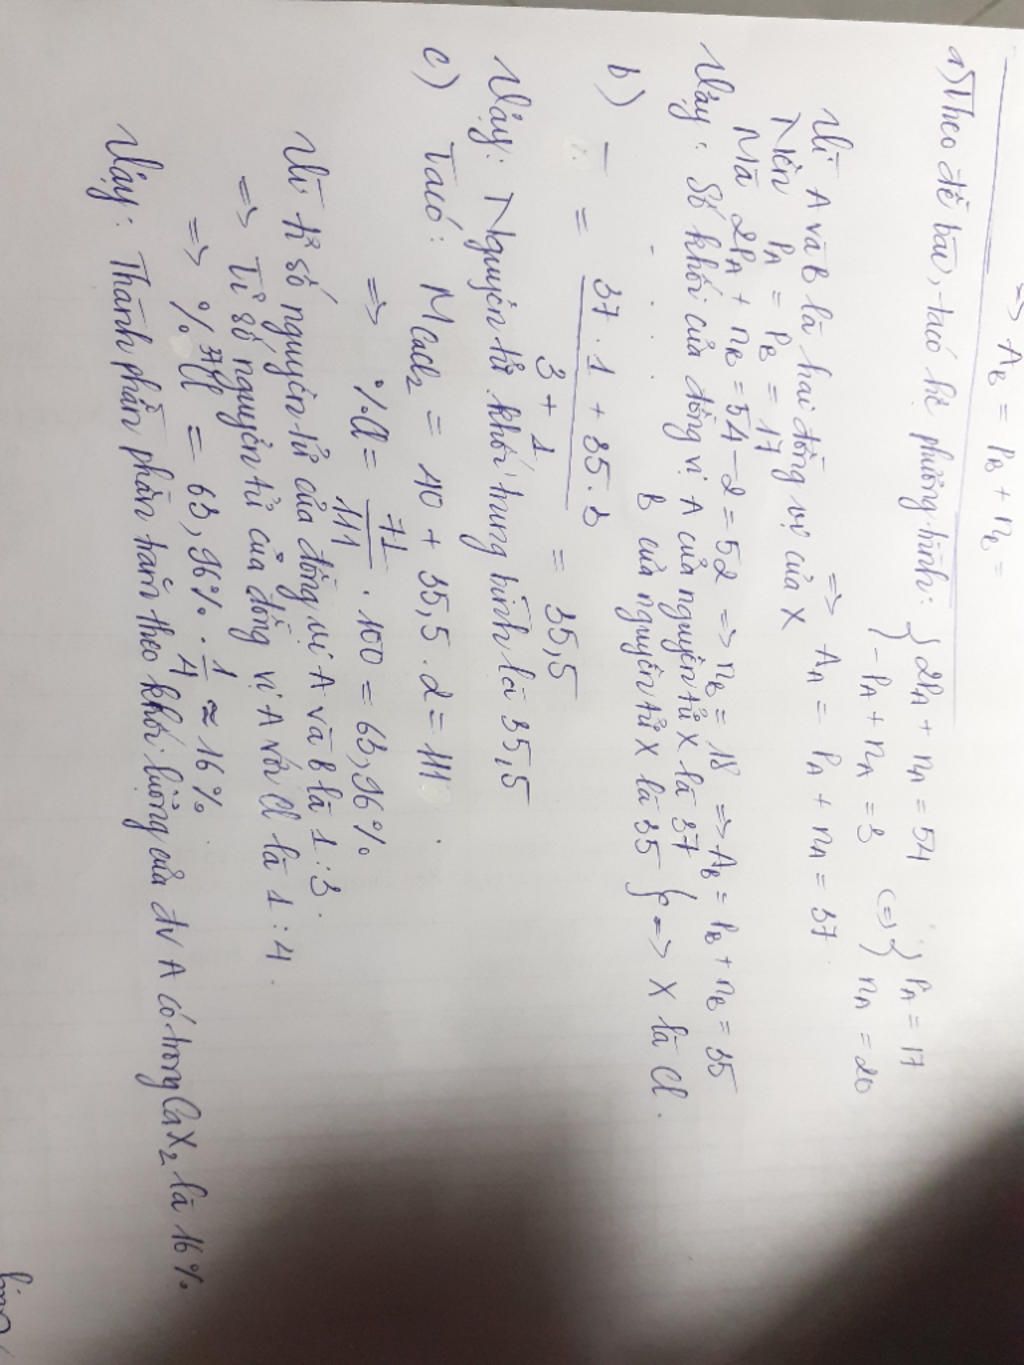 => A_B = P_B + n_B =
a) Theo đề bài, ta có hệ phương trình: { 2P_A + n_A = 54 { P_A = 17
{ - P_A + n_A = 3 <=> { n_A = 20
=> A_A = P_A + n_A = 37
Vì A và B là hai đồng vị của X
Nên P_A = P_B = 17
Mà 2P_A + n_B = 54 - 2 = 52 => n_B = 18 => A_B = P_B + n_B = 35
Vậy: Số khối của đồng vị A của nguyên tử X là 37
B của nguyên tử X là 35 } => X là Cl.
b) = 37 . 1 + 35 . 3 / 3 + 1 = 35,5
Vậy: Nguyên tử khối trung bình là 35,5
c) Ta có: M CaCl₂ = 40 + 35,5 . 2 = 111
=> % Cl = 71/111 . 100 = 63,96%
Vì tỉ số nguyên tử của đồng vị A và B là 1 : 3.
=> Tỉ số nguyên tử của đồng vị A với Cl là 1 : 4.
=> % ³⁷Cl = 63,96% . 1/4 ≈ 16%
Vậy: Thành phần phần trăm theo khối lượng của đv A có trong CaX₂ là 16%